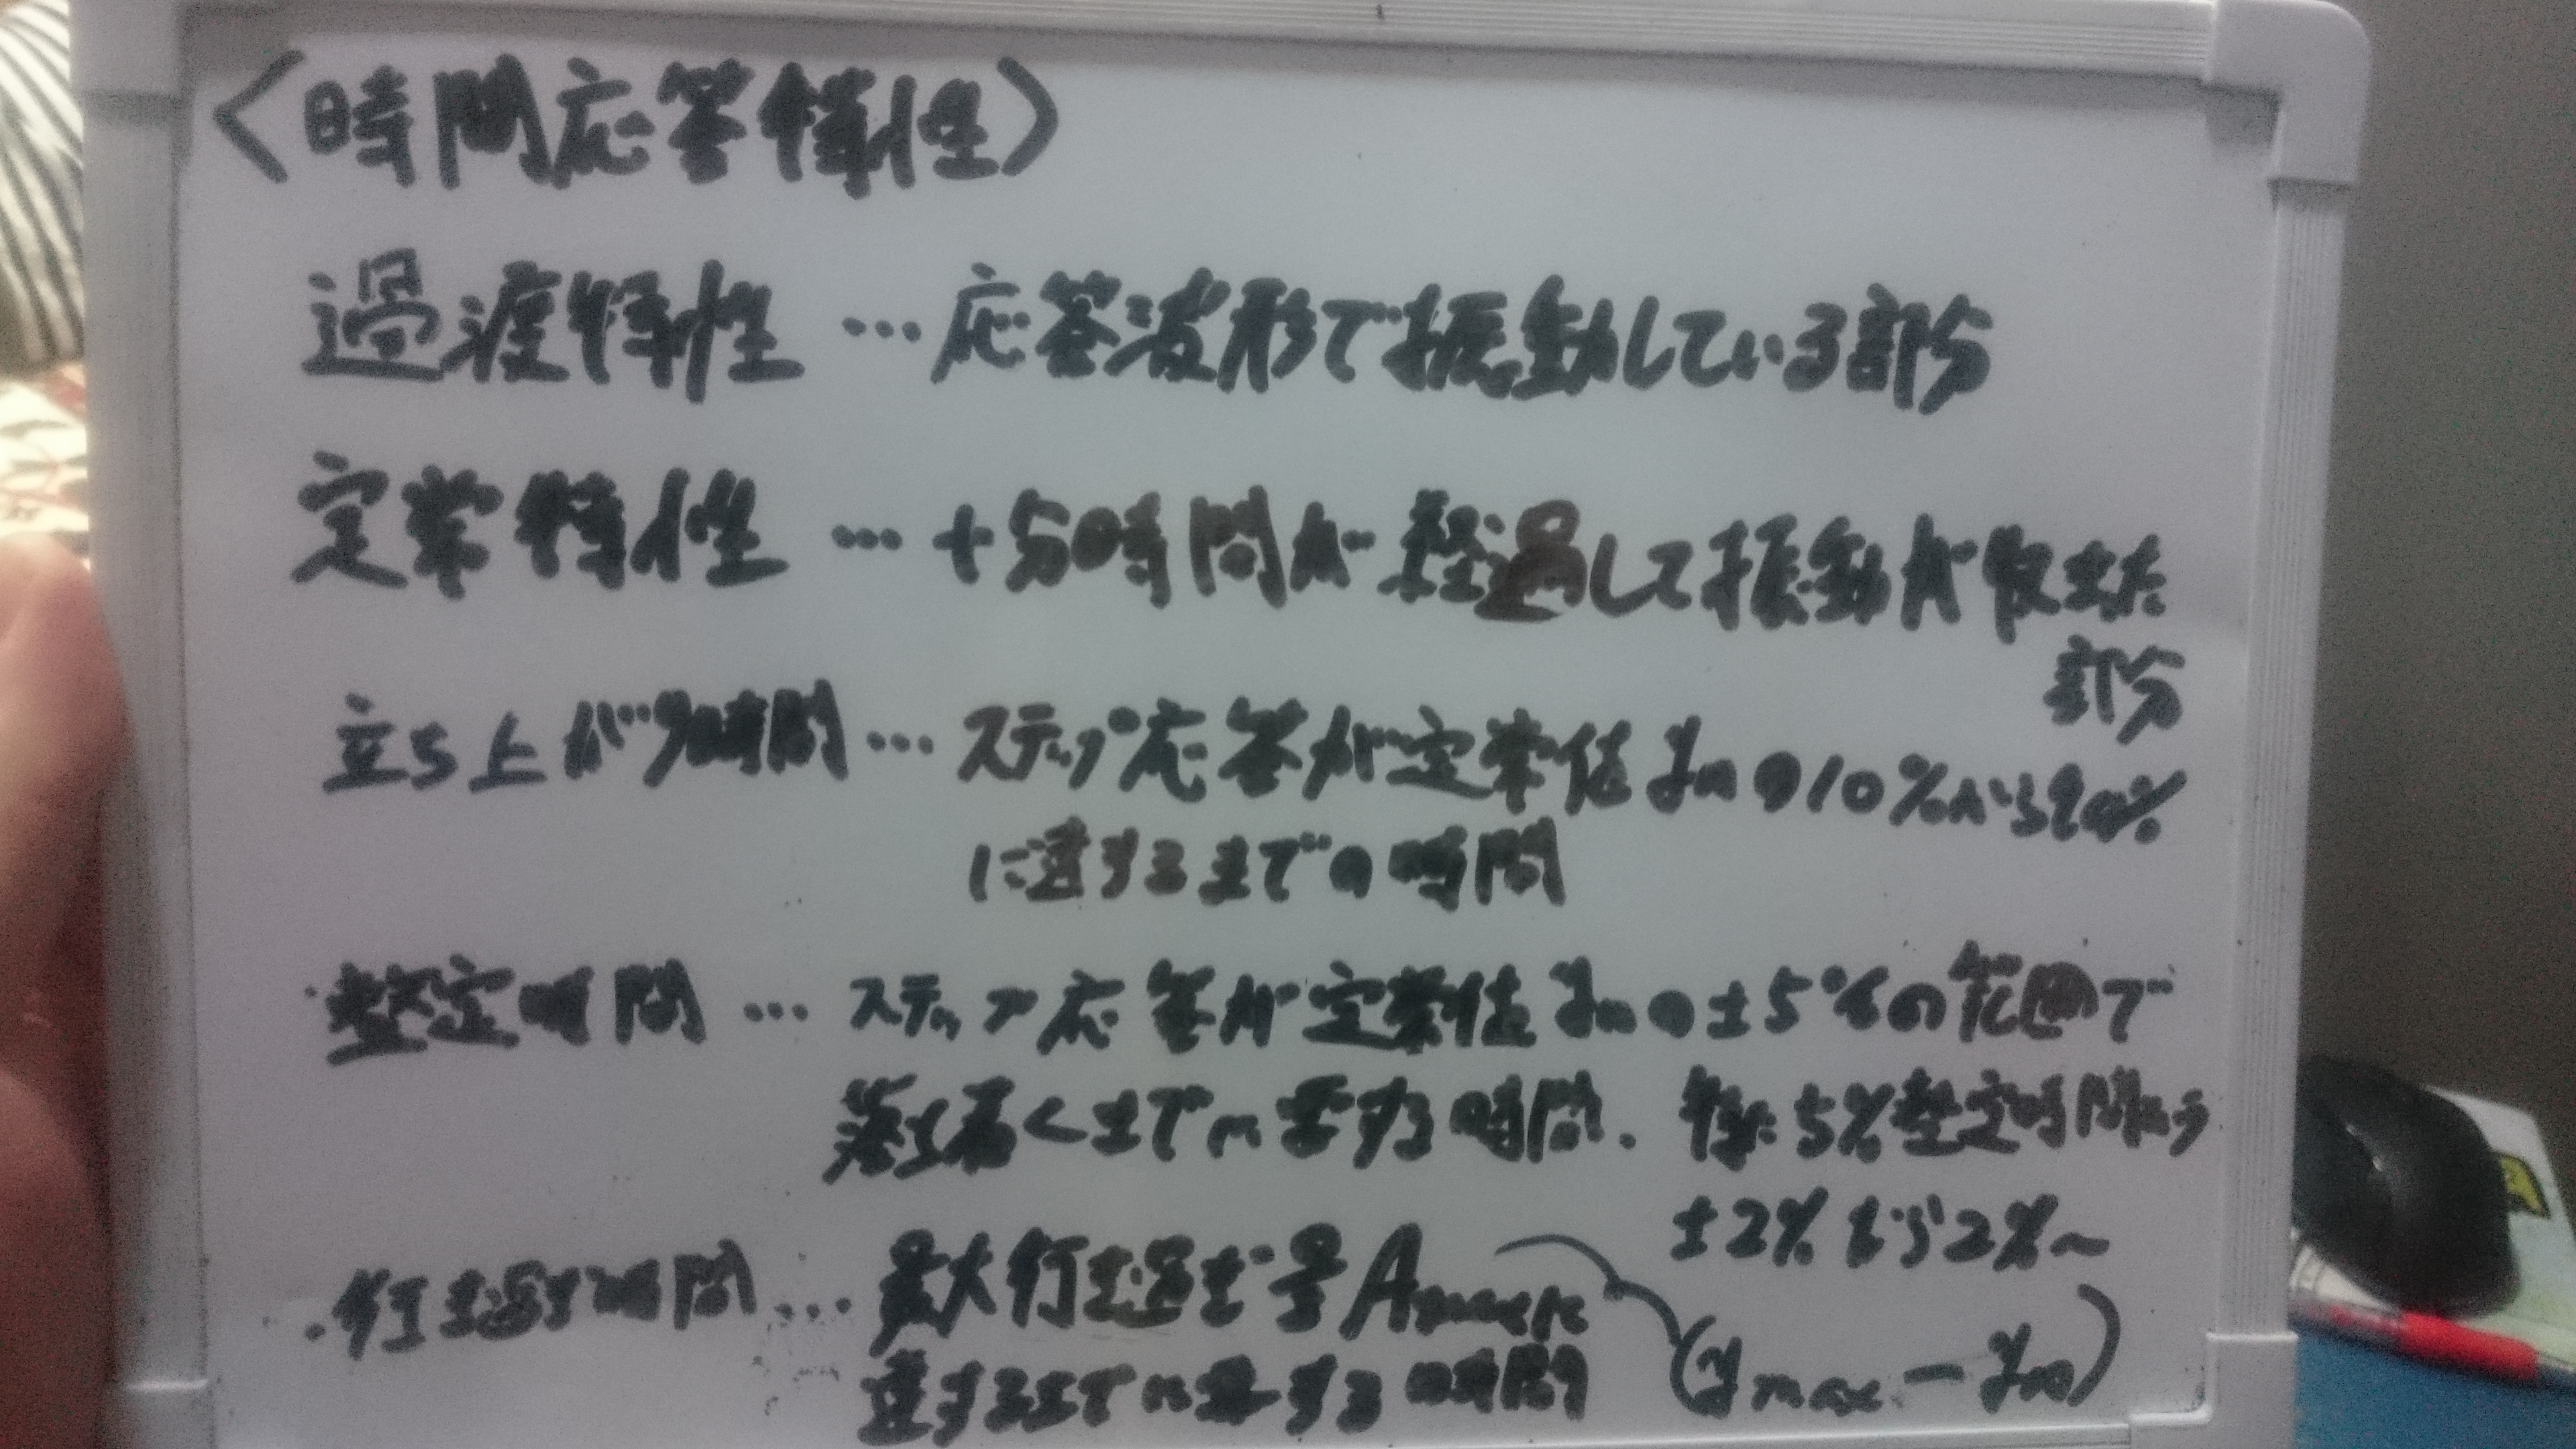 〈時間応答特性〉
過渡特性 … 応答波形で振動している部分
定常特性 … 十分時間が経過して振動が収また
部分
立ち上がり時間 … ステップ応答が定常値y∞の10%から90%
に達するまでの時間
・整定時間 … ステップ応答が定常値y∞の±5%の範囲で
落ち着くまでに要する時間. 特に5%整定時間
±2%なら2%〜
・行き過ぎ時間 … 最大行き過ぎ量Amaxに
達するまでに要する時間 (ymax − y∞)